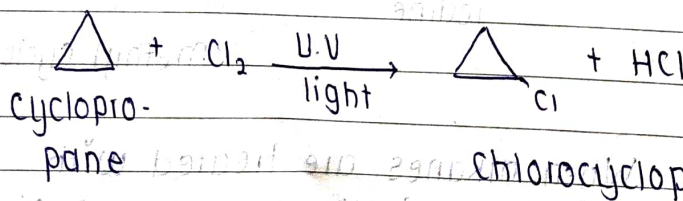 + Cl2 U.V light + HCl
Cl
cyclopro-
pane
chlorocyclop